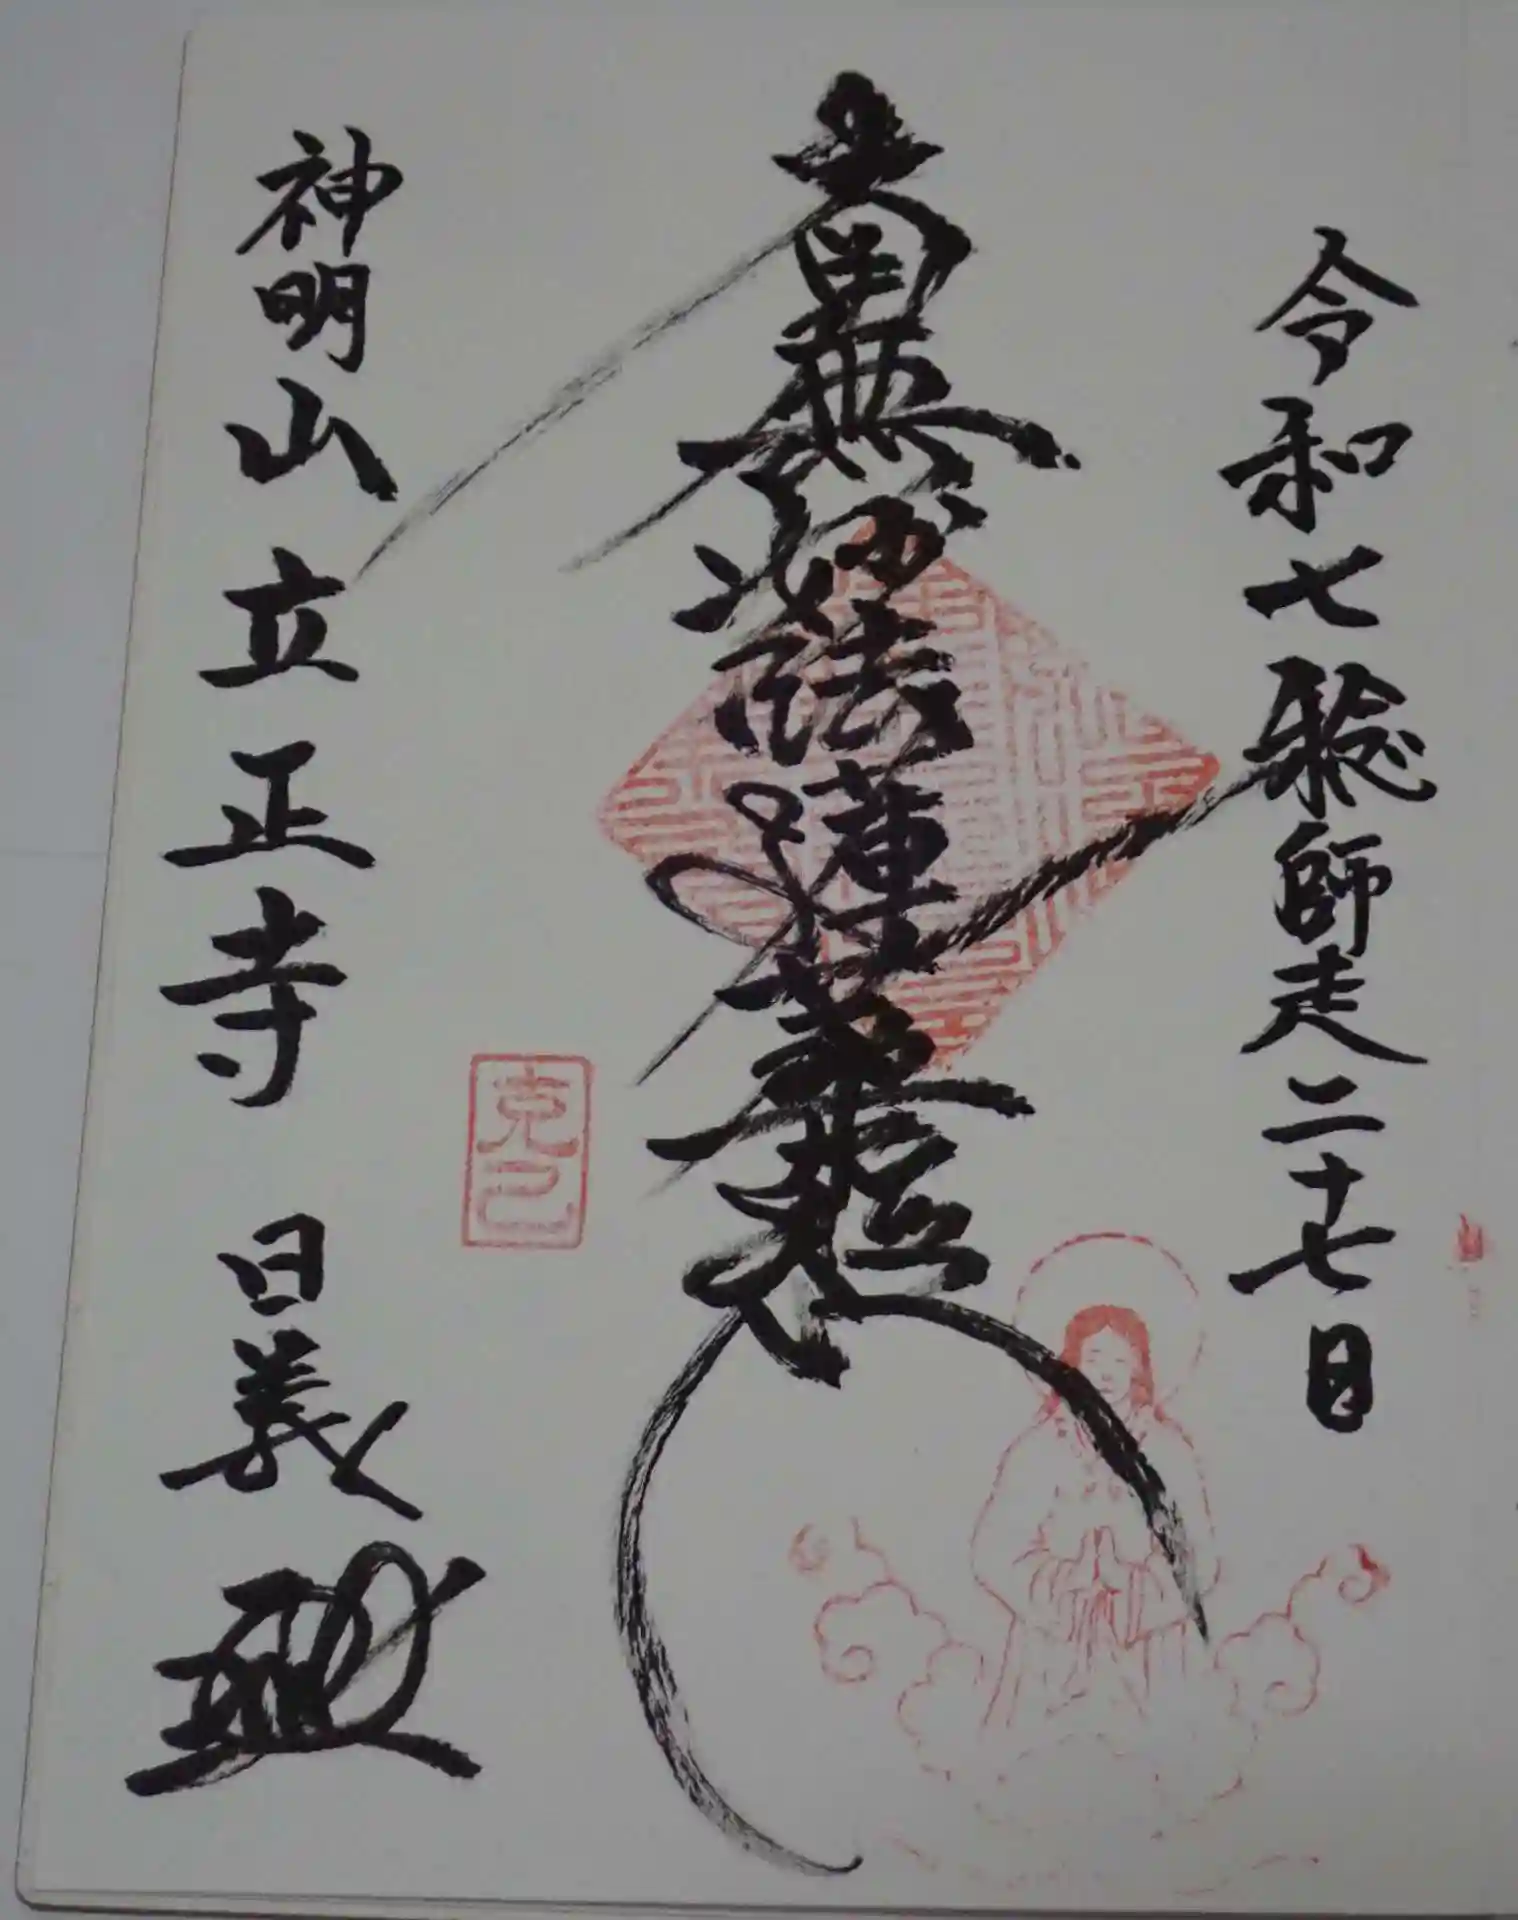 令和七稔師走二十七日
南無妙法蓮華経
神明山立正寺 日義
克己